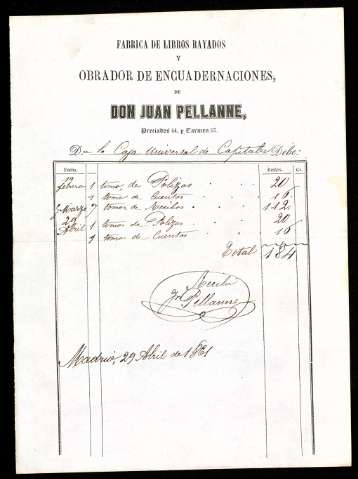 FABRICA DE LIBROS RAYADOS
Y
OBRADOR DE ENCUADERNACIONES,
DE
DON JUAN PELLANNE,
Preciados 54, y Carmen
De la Caja Universal de Capitales Debe:
Fecha. Reales. Cs.
febrero 1 tomo de Polizas 20
1 tomo de Cuentas 16
Marzo 7 tomos de Recibos 112
Abril 1 tomo de Polizas 20
1 tomo de Cuentas 16
Total 184
Recibi
Jn Pellanne
Madrid, 29 Abril de 1861